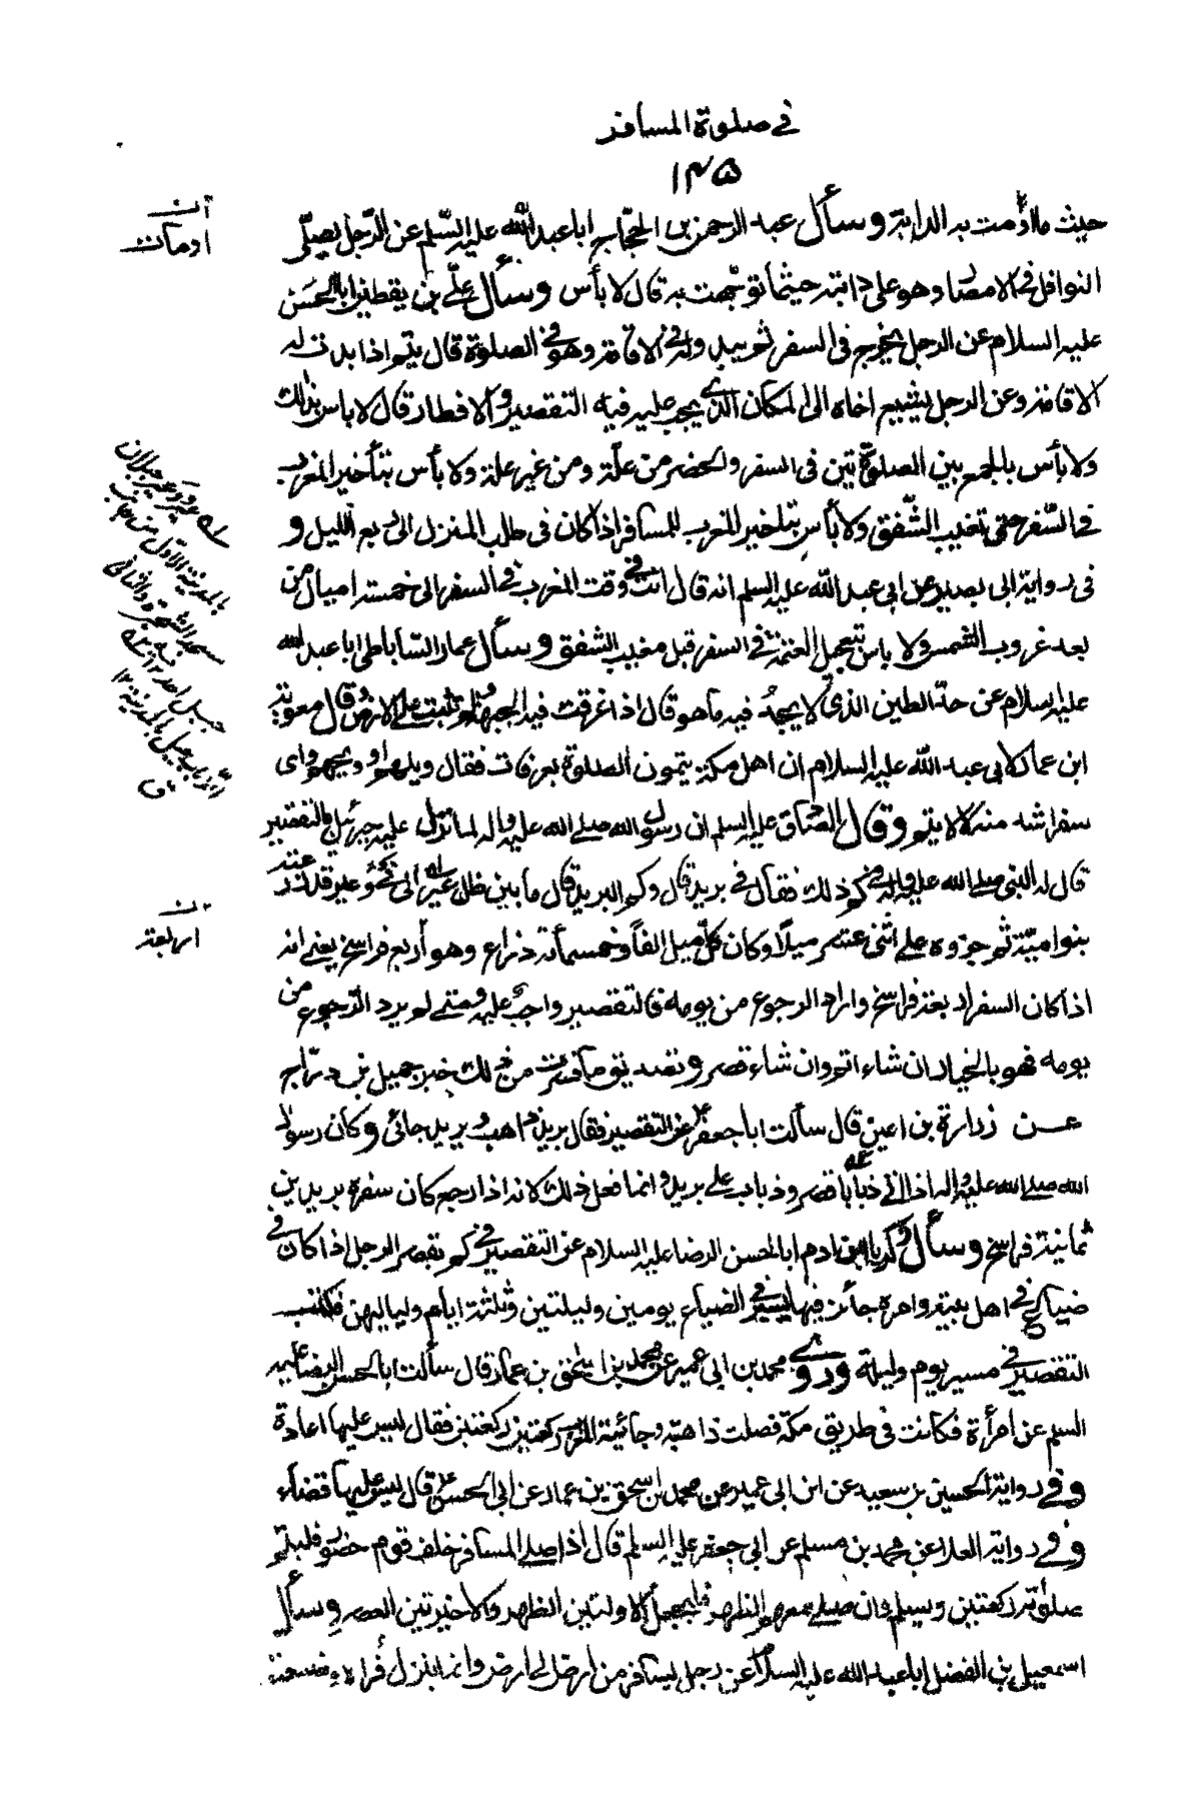 في صلوة المسافر
١٣٥
حيث ما اومت به الدابة وسأل عبد الرحمن بن الحجاج ابا عبد الله عليه السلم عن الرجل يصلي
النوافل في الامصار وهو على دابته حيثما توجهت به قال لا بأس وسأل علي بن يقطين ابا الحسن
عليه السلام عن الرجل يخرج في السفر ثم يبدو له في الاقامة وهو في الصلوة قال يتم اذا بدت له
الاقامة وعن الرجل يشيع اخاه الى المكان الذي يجب عليه فيه التقصير والافطار قال لا باس بذلك
ولا بأس بالجمع بين الصلوتين في السفر والحضر من علة ومن غير علة ولا بأس بتأخير المغرب
في السفر حتى تغيب الشفق ولا بأس بتاخير المغرب للمسافر اذا كان في طلب المنزل الى ربع الليل و
في رواية ابي بصير عن ابي عبد الله عليه السلم انه قال انت في وقت المغرب في السفر الى خمسة اميال من
بعد غروب الشمس ولا باس بتعجيل العتمة في السفر قبل مغيب الشفق وسأل عمار الساباطي ابا عبد الله
عليه السلام عن حد الطين الذي لا يسجد فيه ما هو قال اذا غرقت فيه الجبهة ولم تثبت على الارض وقال معوية
ابن عمار لابي عبد الله عليه السلام ان اهل مكة يتمون الصلوة بعرفات فقال ويلهم او ويحهم واي
سفر اشد منه لا لا يتم وقال الصادق عليه السلم ان رسول الله صلى الله عليه واله لما نزل عليه جبرئيل بالتقصير
قال له النبي صلى الله عليه واله في كم ذلك فقال في بريد قال وكم البريد قال ما بين ظل عير الى فئ وعير فذرعته
بنو امية ثم جزوه على اثني عشر ميلا وكان كل ميل الفا وخمسمائة ذراع وهو أربع فراسخ يعني انه
اذا كان السفر اربعة فراسخ واراد الرجوع من يومه فالتقصير واجب عليه ومتى لم يرد الرجوع من
يومه فهو بالخيار ان شاء اتم وان شاء قصر وتصديق ما فسرت من ذلك خبر جميل بن دراج
عن زرارة بن اعين قال سألت ابا جعفر ع عن التقصير فقال بريد ذاهب وبريد جائي وكان رسول
الله صلى الله عليه واله اذا اتى ذبابا قصر وذباب على بريد وانما فعل ذلك لانه اذا رجع كان سفره بريدين
ثمانية فراسخ وسأل زكريا ابن ادم ابا الحسن الرضا عليه السلام عن التقصير في كم يقصر الرجل اذا كان في
ضياع اهل بيته وامره جائز فيها يسير في الضياع يومين وليلتين وثلثة ايام ولياليهن فكتب
التقصير في مسير يوم وليلة وروى محمد بن ابي عمير عن محمد بن اسحق بن عمار قال سألت ابا الحسن الرضا عليه
السلم عن امرأة فكانت في طريق مكة فصلت ذاهبة وجائية المغرب ركعتين ركعتين فقال ليس عليها اعادة
وفي رواية الحسين بن سعيد عن ابن ابي عمير عن محمد بن اسحق بن عمار عن ابي الحسن ع قال ليس عليها قضاء
وفي رواية العلا عن محمد بن مسلم عن ابي جعفر عليه السلم قال اذا صلى المسافر خلف قوم حضور فليتم
صلوته ركعتين ويسلم وان صلى معهم الظهر فليجعل الاولتين الظهر والاخيرتين العصر وسأل
اسمعيل بن الفضل ابا عبد الله عليه السلام عن رجل يسافر من ارض الى ارض وانما ينزل قراه وضيعته
اومأت
اربعة